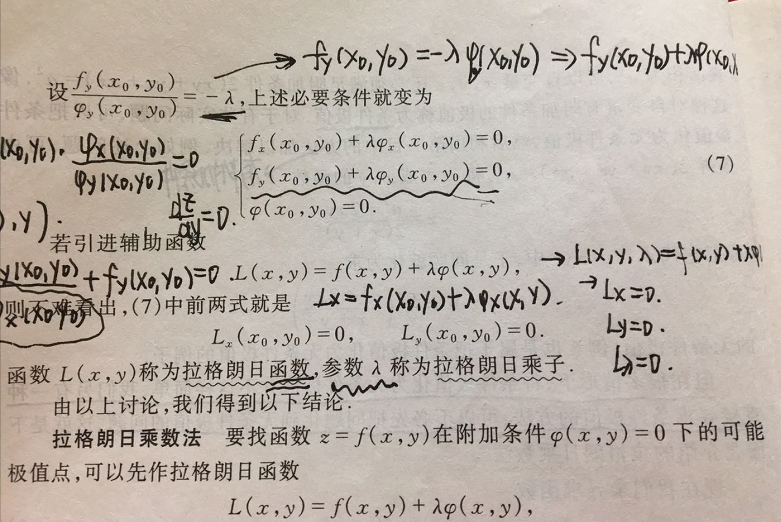 → fy(x0,y0)=-λφy(x0,y0) ⇒ fy(x0,y0)+λφ(x0,
设 f_y(x_0,y_0)/φ_y(x_0,y_0) = -λ,上述必要条件就变为
(x0,y0)· φx(x0,y0)/φy(x0,y0) =0
f_x(x_0,y_0)+λφ_x(x_0,y_0)=0,
f_y(x_0,y_0)+λφ_y(x_0,y_0)=0, (7)
φ(x_0,y_0)=0.
dz/dy=0.
),y).
若引进辅助函数
y(x0,y0) + fy(x0,y0)=0
L(x,y)=f(x,y)+λφ(x,y),
→ L(x,y,λ)=f(x,y)+λφ(
x(x0,y0)
则不难看出,(7)中前两式就是
Lx=fx(x0,y0)+λφx(x,y).
→ Lx=0.
L_x(x_0,y_0)=0, L_y(x_0,y_0)=0.
Ly=0.
Lλ=0.
函数 L(x,y)称为拉格朗日函数,参数 λ 称为拉格朗日乘子.
由以上讨论,我们得到以下结论.
拉格朗日乘数法 要找函数 z=f(x,y)在附加条件 φ(x,y)=0 下的可能
极值点,可以先作拉格朗日函数
L(x,y)=f(x,y)+λφ(x,y),